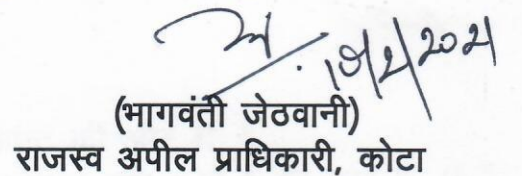 10/2/2021
(भागवंती जेठवानी)
राजस्व अपील प्राधिकारी, कोटा